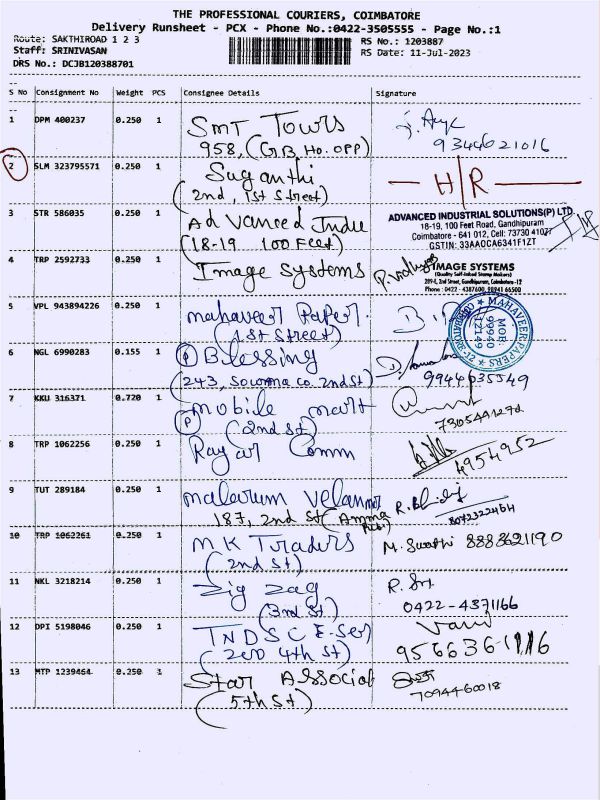 THE PROFESSIONAL COURIERS, COIMBATORE
Delivery Runsheet - PCX - Phone No.:0422-3505555 - Page No.:1
Route: SAKTHIROAD 1 2 3 RS No.: 1203887
Staff: SRINIVASAN RS Date: 11-Jul-2023
DRS No.: DCJB120388701
S No Consignment No Weight PCS Consignee Details Signature
1 DPM 400237 0.250 1 SMT Tours
958, (G.B Ho. OPP) 9344021016
2 SLM 323795571 0.250 1 Suganthi H/R
(2nd, 1st Street)
3 STR 586035 0.250 1 Advanced Indu
(18-19 100 Feet)
ADVANCED INDUSTRIAL SOLUTIONS(P) LTD
18-19, 100 Feet Road, Gandhipuram
Coimbatore - 641 012, Cell: 73730 41077
GSTIN: 33AAOCA6341F1ZT
4 TRP 2592733 0.250 1 Image Systems
IMAGE SYSTEMS
(Quality Self-Inked Stamp Makers)
209-E, 2nd Street, Gandhipuram, Coimbatore-12
Phone : 0422 - 4387600, 98941 66500
5 VPL 943894226 0.250 1 mahaveer Paper.
(1st Street)
MAHAVEER PAPERS
COIMBATORE-12
MOB
99940
12149
6 NGL 6990283 0.155 1 (P) Blessing
(243, 2nd St) 9944035549
7 KKU 316371 0.720 1 mobile mart
(P) (2nd St) 7305449127d
8 TRP 1062256 0.250 1 Ragav Comm
4954952
9 TUT 289184 0.250 1 malarum velanmai
187, 2nd St (Amma
8072322464
10 TRP 1062261 0.250 1 M K Traders M. Swathi 8883621190
(2nd St)
11 NKL 3218214 0.250 1 Zig Zag R. Sri
(3rd St) 0422-4371166
12 DPI 5198046 0.250 1 TNDSC E-Ser Vani
(200 4th St) 9566361116
13 MTP 1239464 0.250 1 Star Associat
(5th St) 7094460018